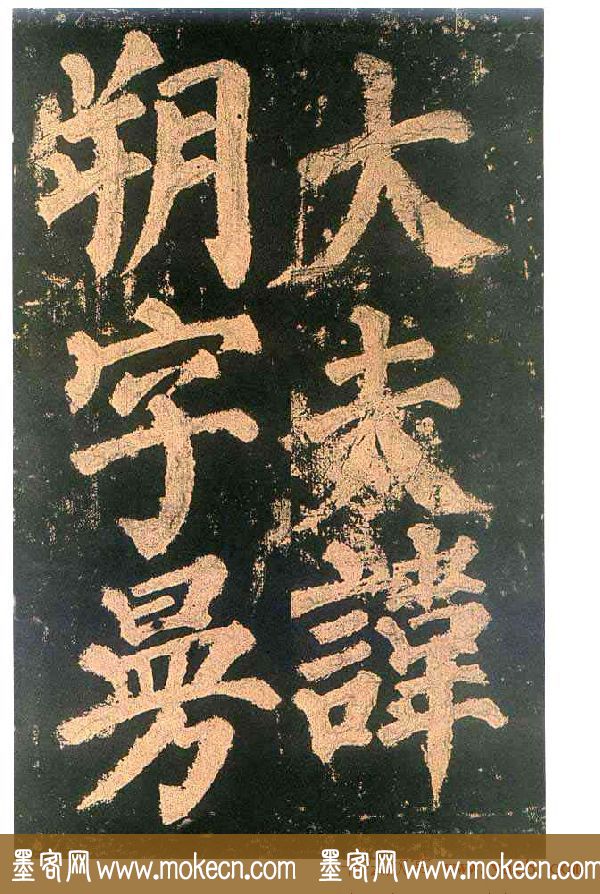 大夫諱
朔字曼
墨客网 www.mokecn.com 墨客网 www.mokecn.com